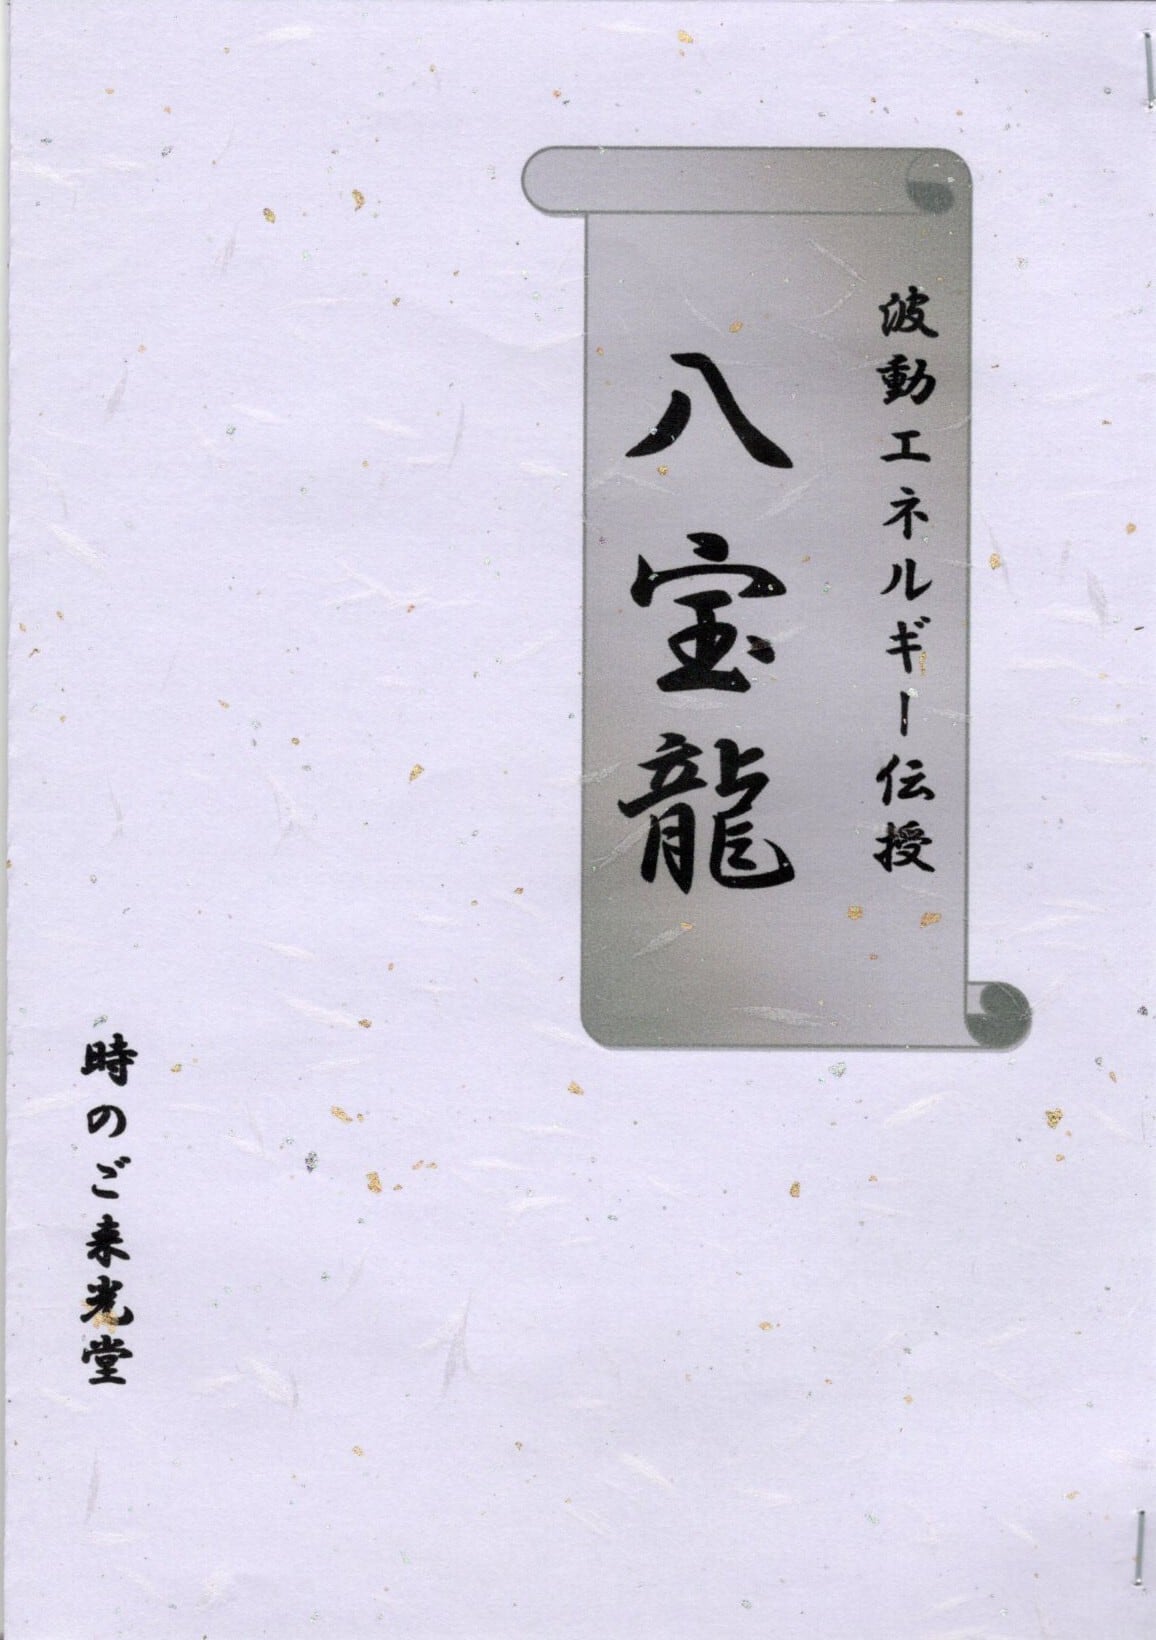 波動エネルギー伝授
八宝龍
時のご来光堂